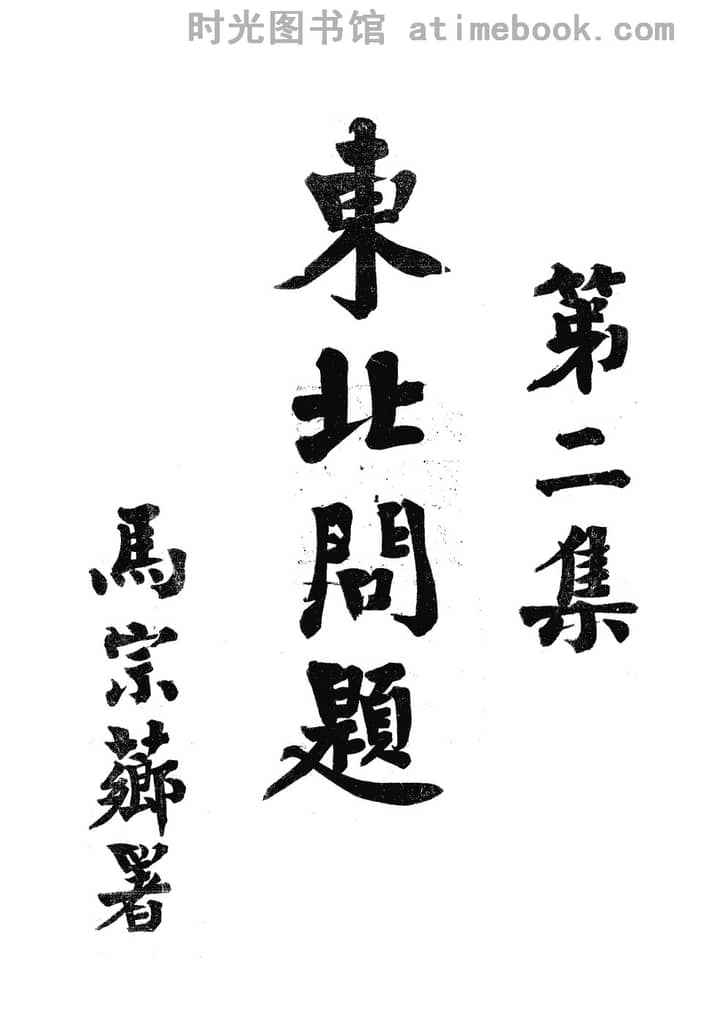 时光图书馆 atimebook.com
第二集
東北問題
馬宗薌署